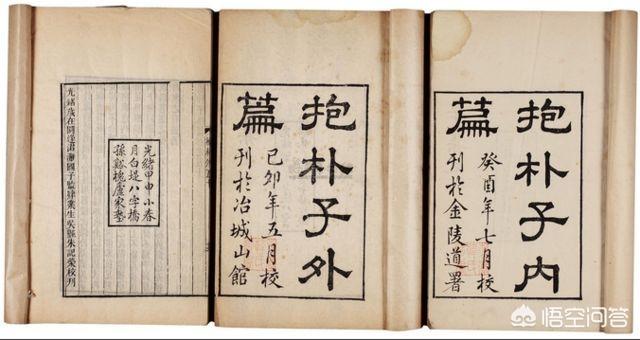 抱朴子内
篇
癸酉年七月校
刊於金陵道署
抱朴子外
篇
己卯年五月校
刊於冶城山館
光緒甲申小春
月白堤八字橋
孫谿槐廬家塾
光緒歲在閼逢涒灘國子監肄業生吳縣朱記榮校刊
悟空问答